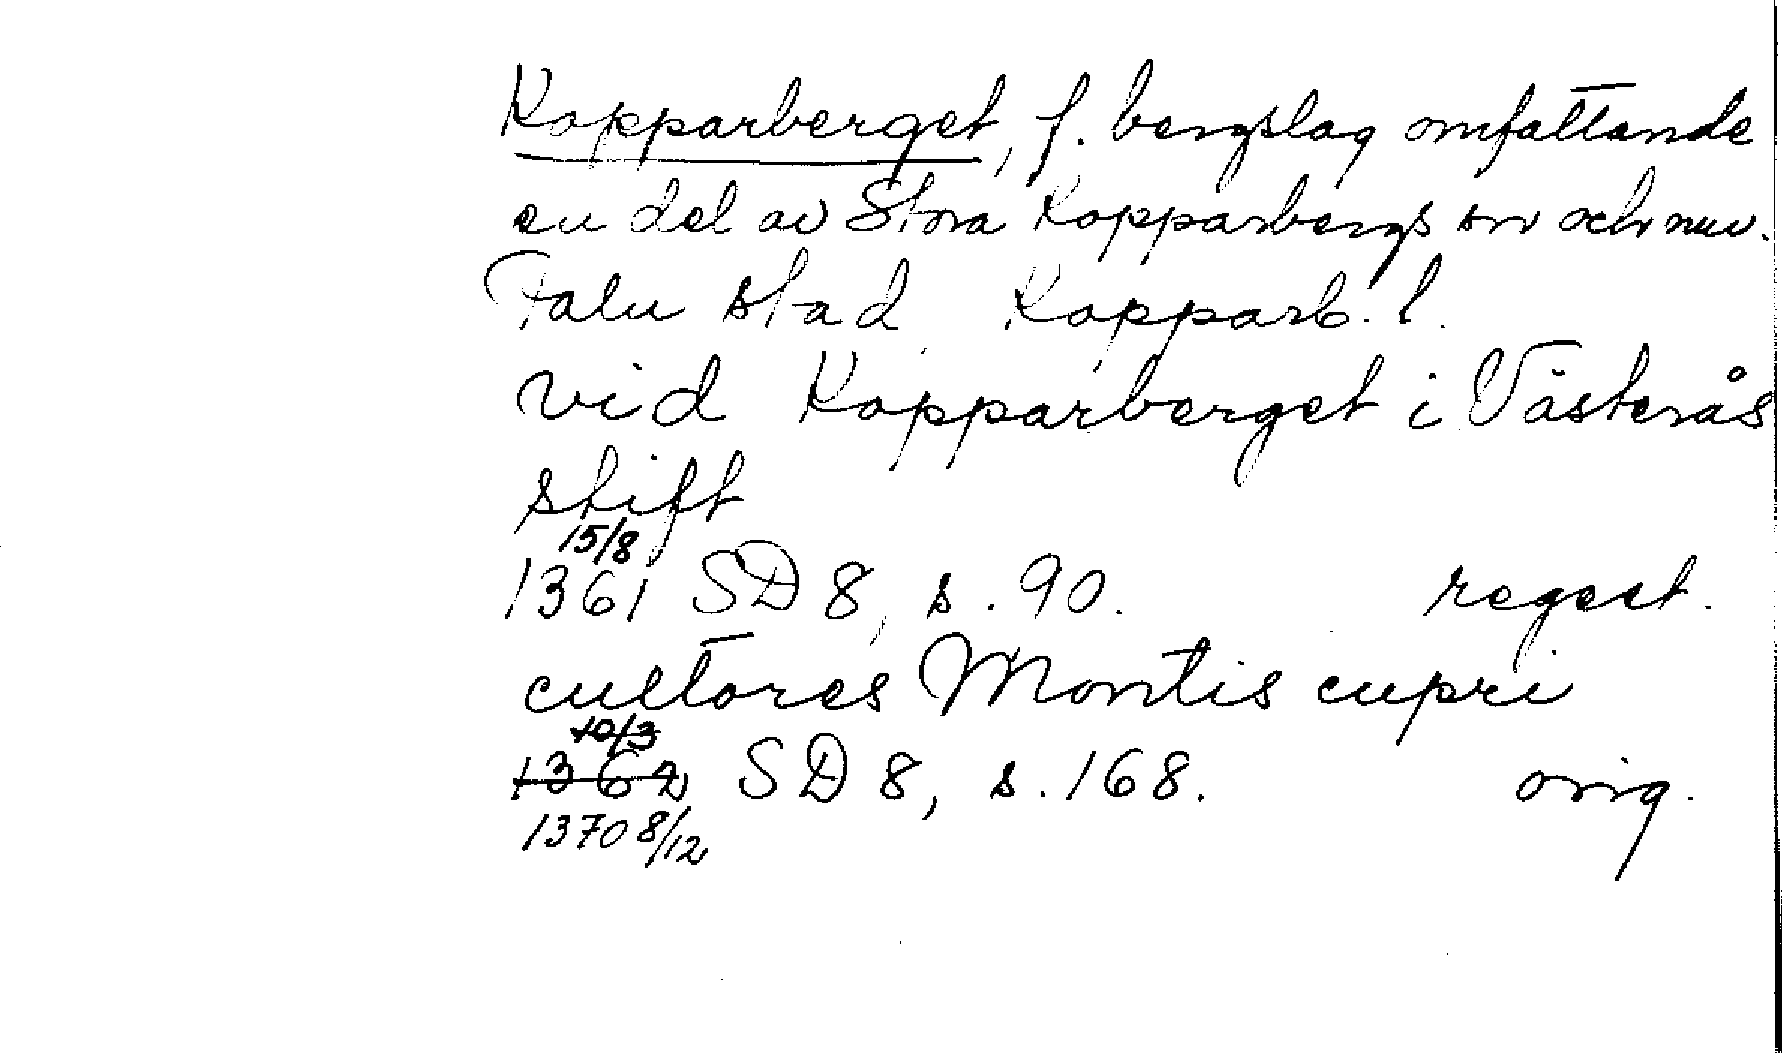 Kopparberget, f. bergslag omfattande
en del av Stora Kopparbergs sn och nuv.
Falu stad, Kopparb. l.
vid Kopparberget i Västerås
stift
15/8
1361 SD 8, s. 90. regest.
cultores Montis cupri
10/3
1362 SD 8, s. 168. orig.
1370 8/12